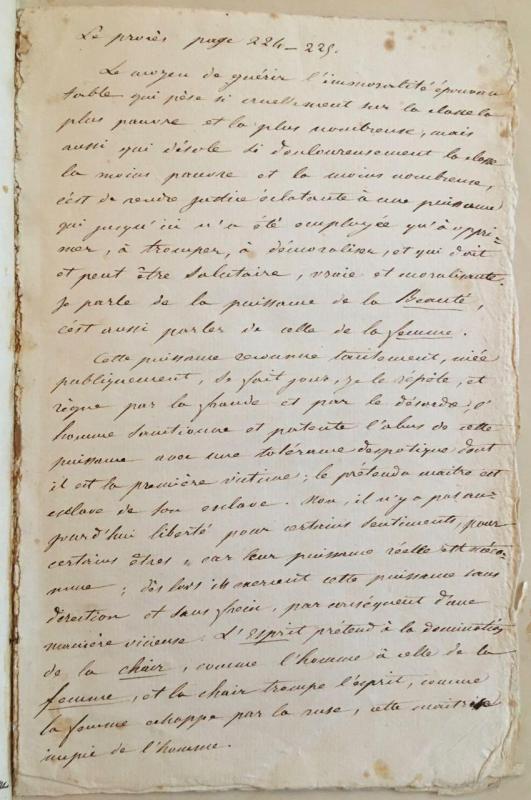 Le procès page 224–225.
Le moyen de guérir l'immoralité épouvan
table qui pèse si cruellement sur la classe la
plus pauvre et la plus nombreuse, mais
aussi qui désole si douloureusement la classe
la moins pauvre et la moins nombreuse,
c'est de rendre justice éclatante à une puissance
qui jusqu'ici n'a été employée qu'à oppri-
mer, à tromper, à démoraliser, et qui doit
et peut être salutaire, vraie et moralisante.
Je parle de la puissance de la Beauté,
c'est aussi parler de celle de la femme.
Cette puissance reconnue tacitement, niée
publiquement, se fait jour, je le répète, et
règne par la fraude et par le désordre; l'
homme sanctionne et patente l'abus de cette
puissance avec une tolérance despotique dont
il est la première victime; le prétendu maître est
esclave de son esclave. Non, il n'y a pas au-
jourd'hui liberté pour certains sentiments, pour
certains êtres, car leur puissance réelle est mécon
nue; dès lors ils exercent cette puissance sans
direction et sans frein, par conséquent d'une
manière vicieuse. L'Esprit prétend à la domination
de la chair, comme l'homme à celle de la
femme, et la chair trompe l'esprit, comme
la femme échappe par la ruse, cette maîtrise
impie de l'homme.